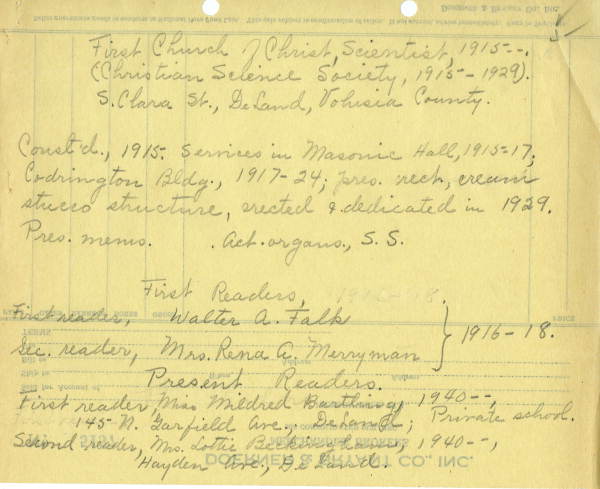 First Church of Christ, Scientist, 1915--.
(Christian Science Society, 1915-1929).
S. Clara St., DeLand, Volusia County.
Const'd., 1915. Services in Masonic Hall, 1915-17,
Codrington Bldg., 1917-24; pres. rect. cream
stucco structure, erected & dedicated in 1929.
Pres. mems. . Act. organs., S. S.
First Readers, 1916-18.
First reader, Walter A. Falk
Sec. reader, Mrs. Rena A. Merryman } 1916-18.
Present Readers.
First reader, Miss Mildred Bartling, 1940--,
145 N. Garfield Ave., DeLand; Private school.
Second reader, Mrs. Lottie 1940--,
Hayden Ave., DeLand.
DOERNER & BRYANT CO., INC.